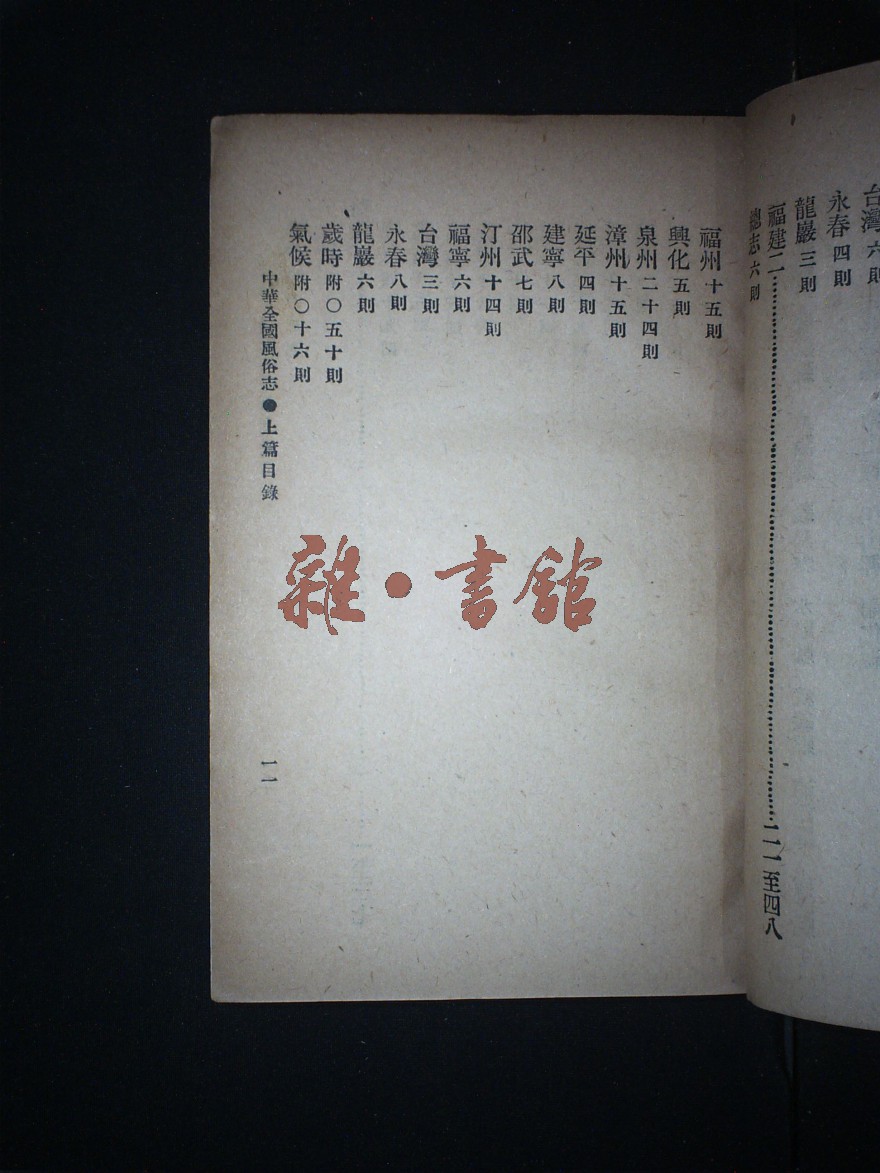 台灣 六則
永春 四則
龍巖 三則
福建二……………………二一至四八
總志 六則
福州 十五則
興化 五則
泉州 二十四則
漳州 十五則
延平 四則
建寧 八則
邵武 七則
汀州 十四則
福寧 六則
台灣 三則
永春 八則
龍巖 六則
歲時 附〇五十則
氣候 附〇十六則
中華全國風俗志●上篇目錄
一一
雜•書館